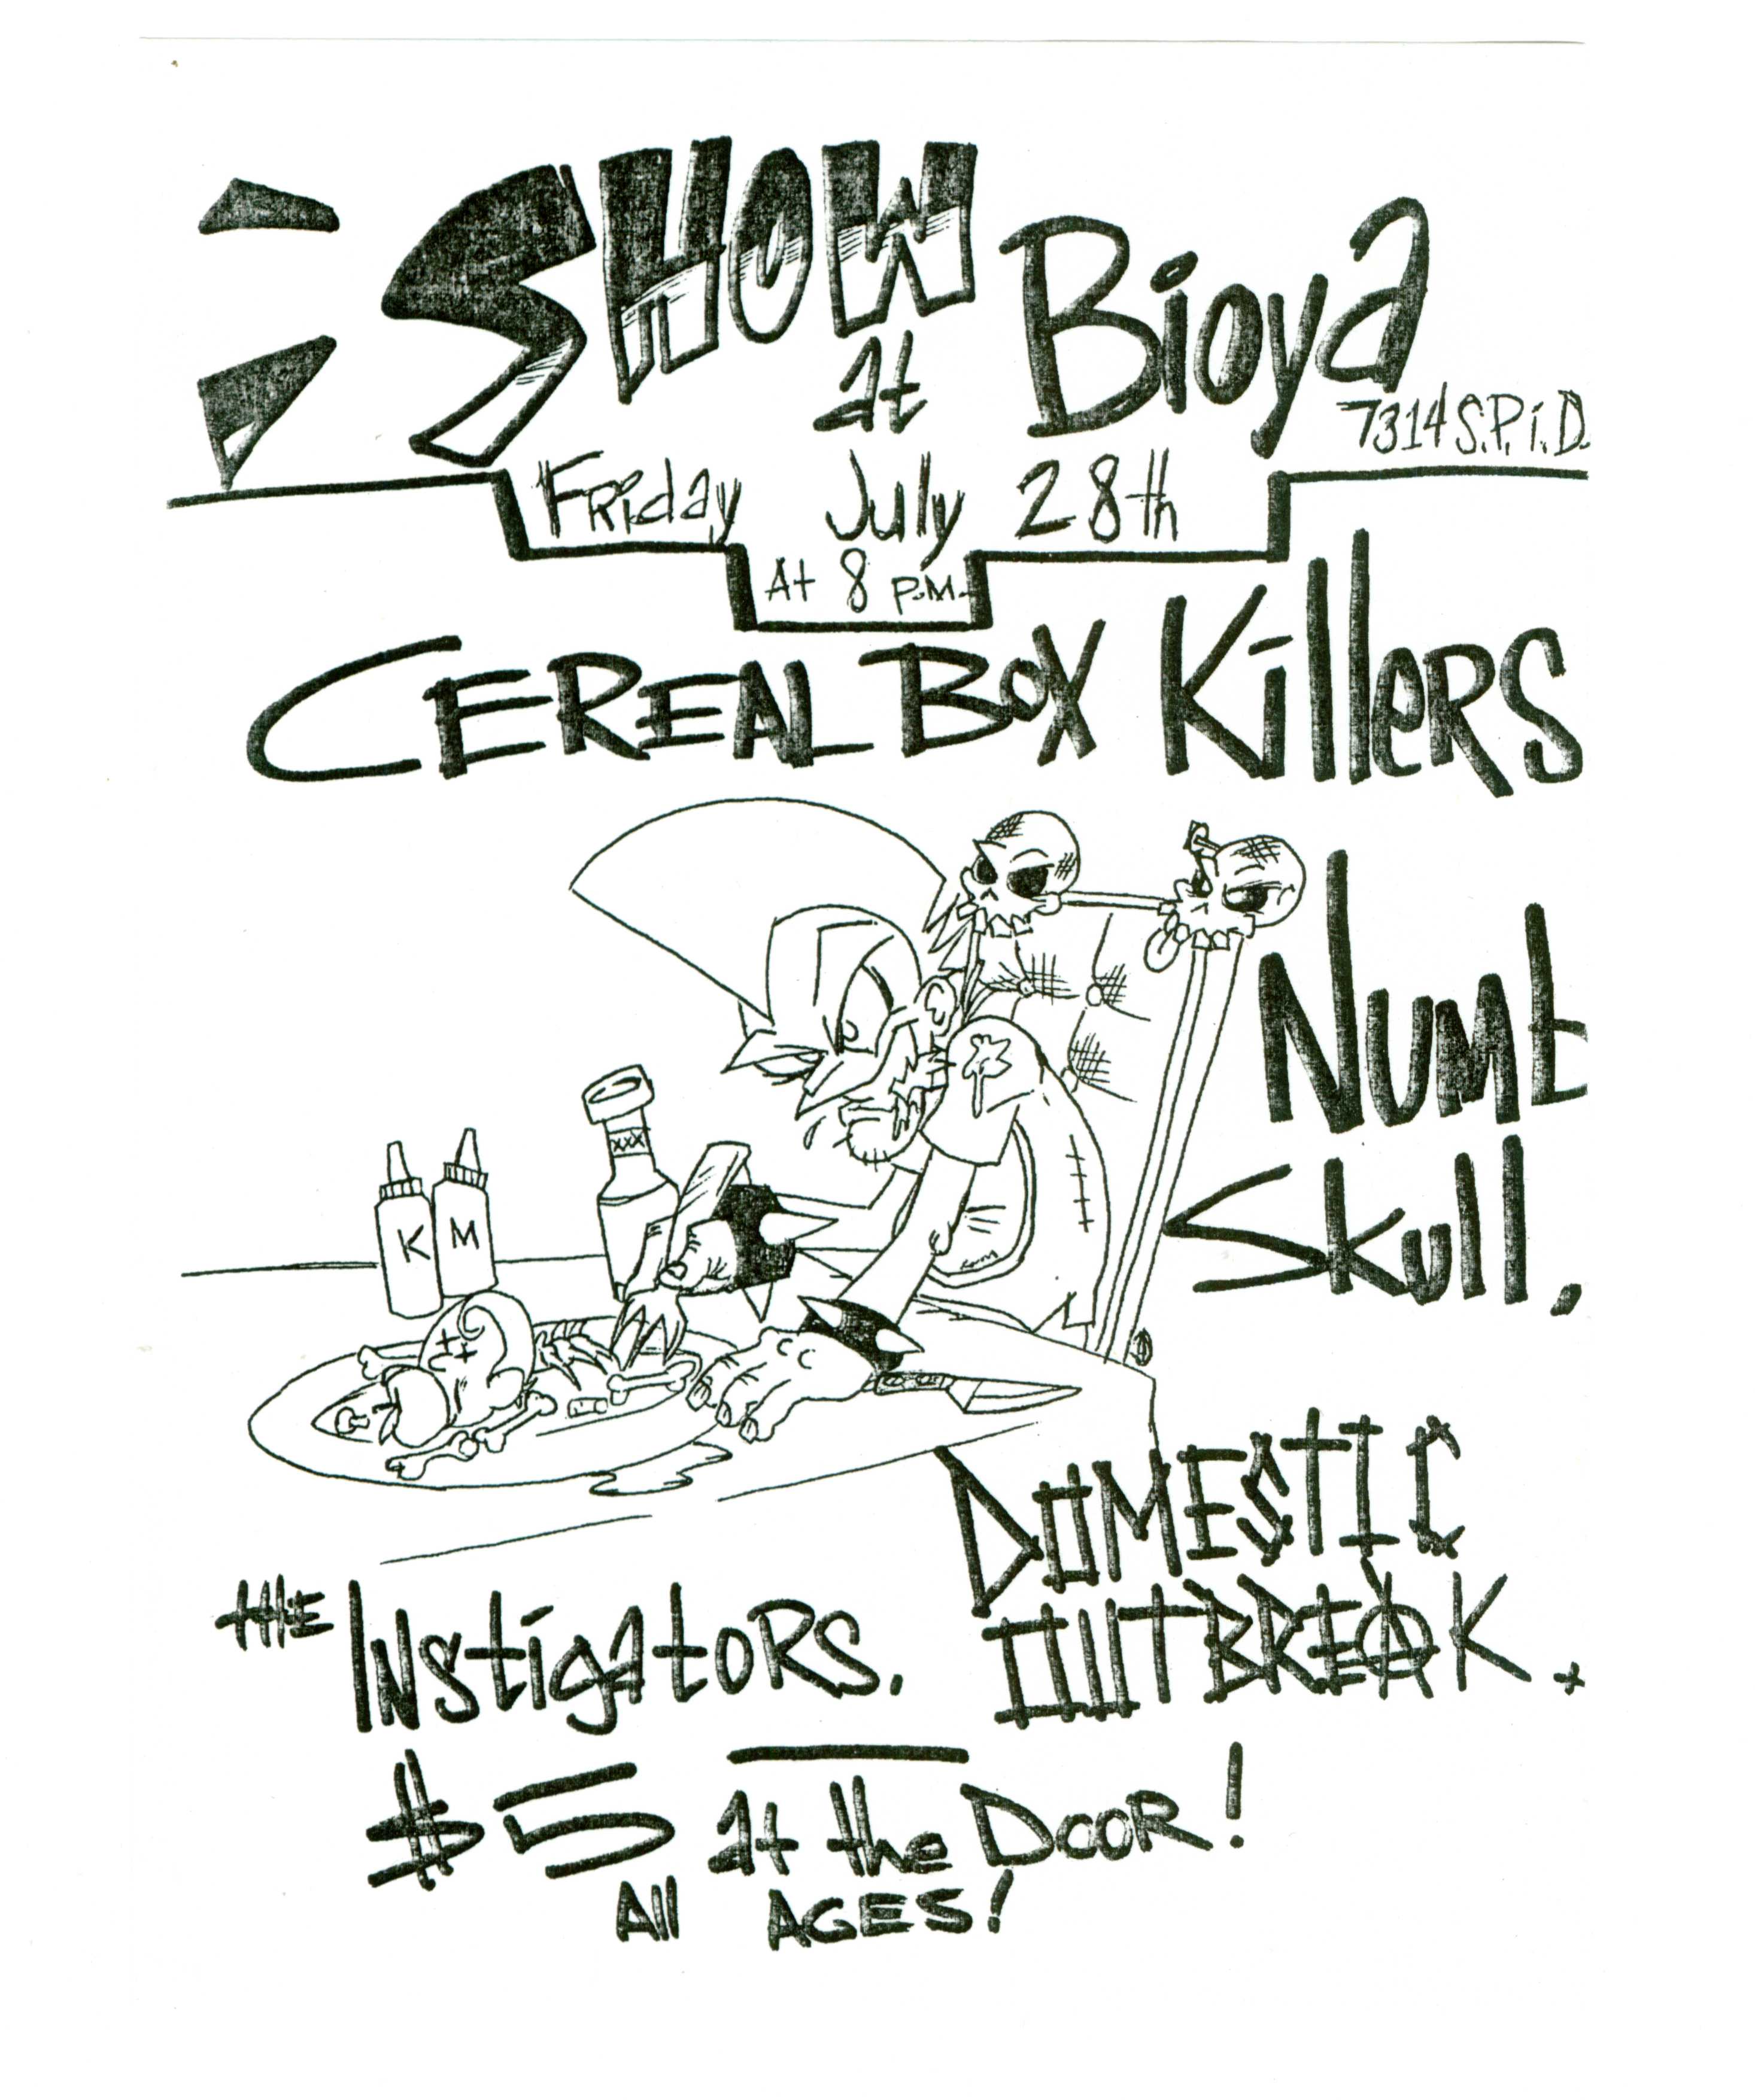 SHOW at Bioya
7314 S.P.i.D.
Friday July 28th
At 8 P.M.
CEREAL BOX KillERS
NUMb
Skull,
XXX
K M
DOMESTIC
OUTBREAK. +
tHE INStigAtoRS.
$5 at the DOOR!
All AGES!